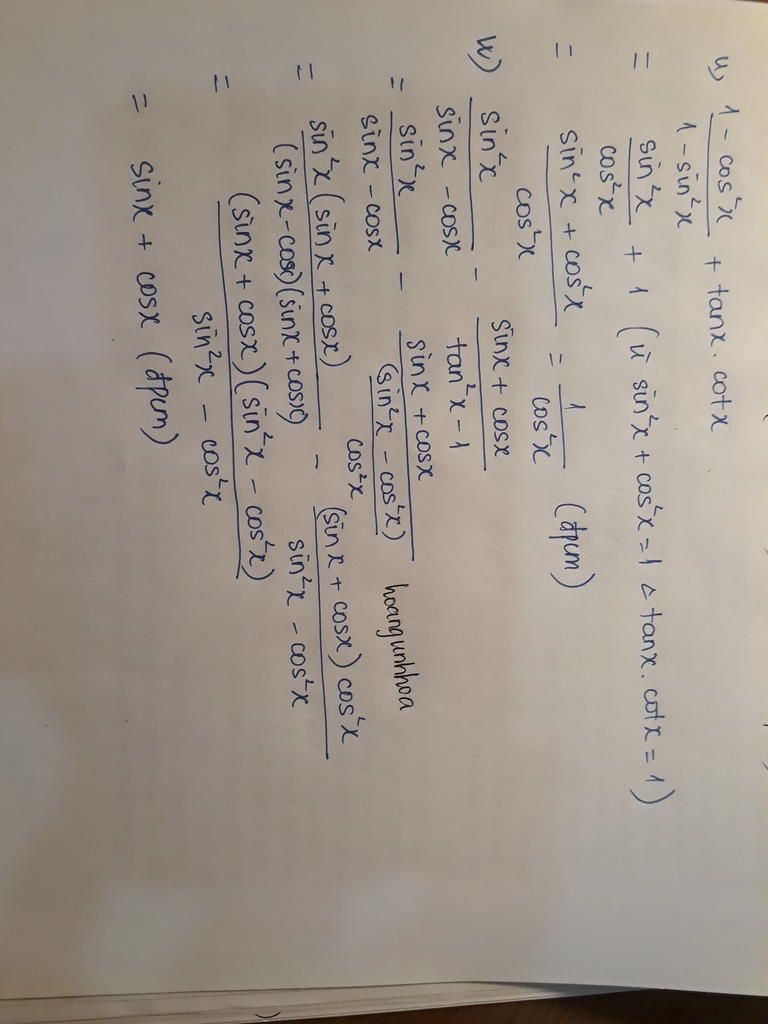 u) (1 - cos²x)/(1 - sin²x) + tanx . cotx
= sin²x/cos²x + 1 (vì sin²x + cos²x = 1 & tanx . cotx = 1)
= (sin²x + cos²x)/cos²x = 1/cos²x (đpcm)
v) sin²x/(sinx - cosx) - (sinx + cosx)/(tan²x - 1)
= sin²x/(sinx - cosx) - (sinx + cosx)/((sin²x - cos²x)/cos²x)
hoangunhhoa
= sin²x (sinx + cosx)/((sinx - cosx)(sinx + cosx)) - (sinx + cosx) cos²x/(sin²x - cos²x)
= (sinx + cosx)(sin²x - cos²x)/(sin²x - cos²x)
= sinx + cosx (đpcm)